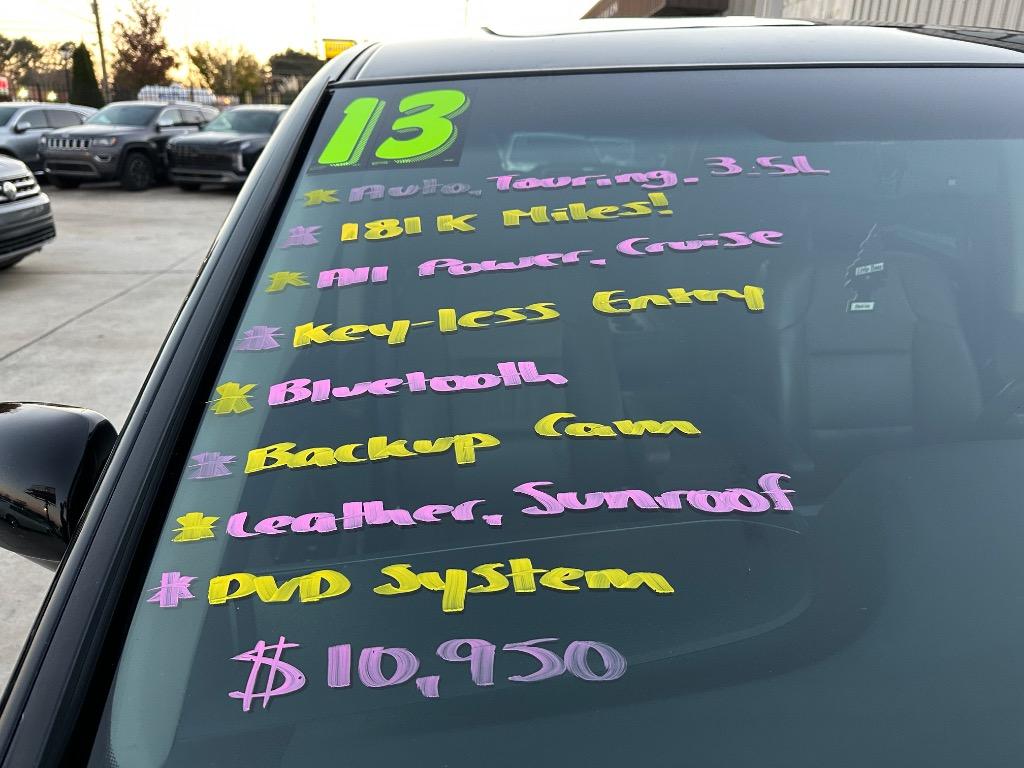 13
* Auto, Touring, 3.5L
* 181K Miles!
* All Power, Cruise
* Key-less Entry
* Bluetooth
* Backup Cam
* Leather, Sunroof
* DVD System
$10,950